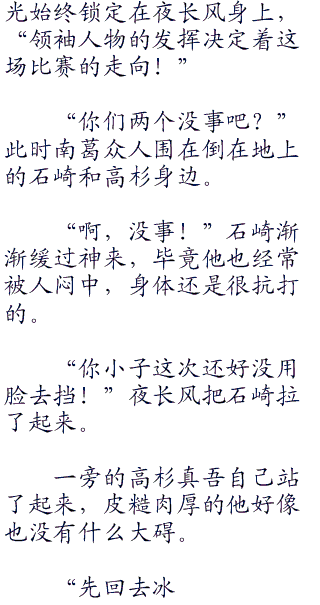 光始终锁定在夜长风身上，
“领袖人物的发挥决定着这
场比赛的走向！”
“你们两个没事吧？”
此时南葛众人围在倒在地上
的石崎和高杉身边。
“啊，没事！”石崎渐
渐缓过神来，毕竟他也经常
被人闷中，身体还是很抗打
的。
“你小子这次还好没用
脸去挡！”夜长风把石崎拉
了起来。
一旁的高杉真吾自己站
了起来，皮糙肉厚的他好像
也没有什么大碍。
“先回去冰